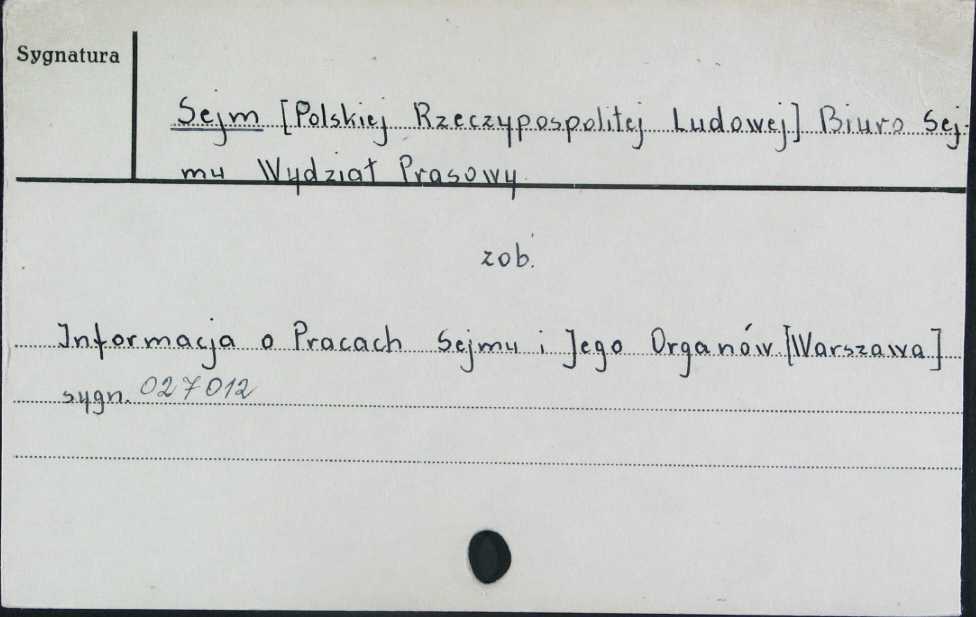 Sygnatura
Sejm [Polskiej Rzeczypospolitej Ludowej] Biuro Sej-
mu Wydział Prasowy
zob.
Informacja o Pracach Sejmu i Jego Organów [Warszawa]
sygn. 027012